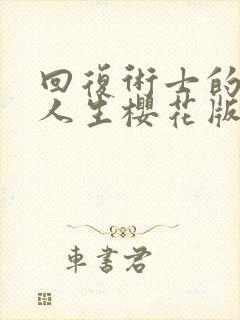 回復術士的
人生櫻花版
車書君